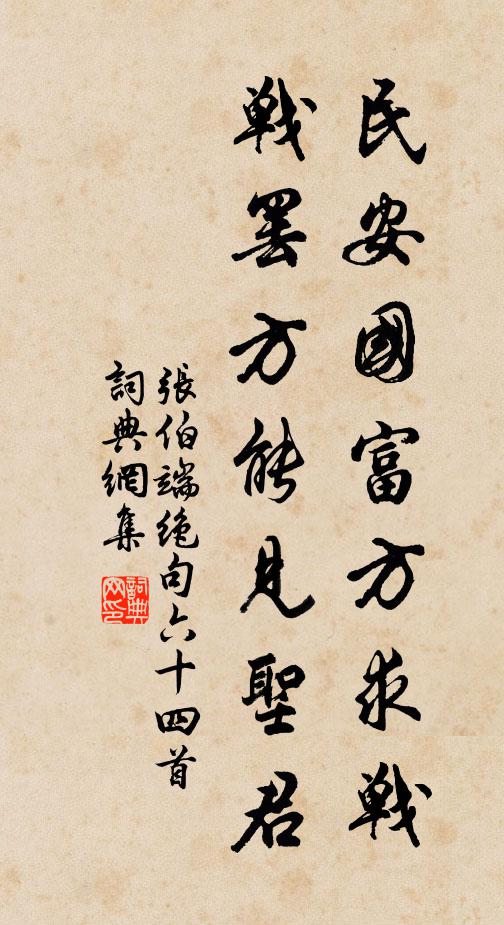 民安國富方求戰
戰罷方能見聖君
張伯端絶句六十四首
詞典網集
詞典網印